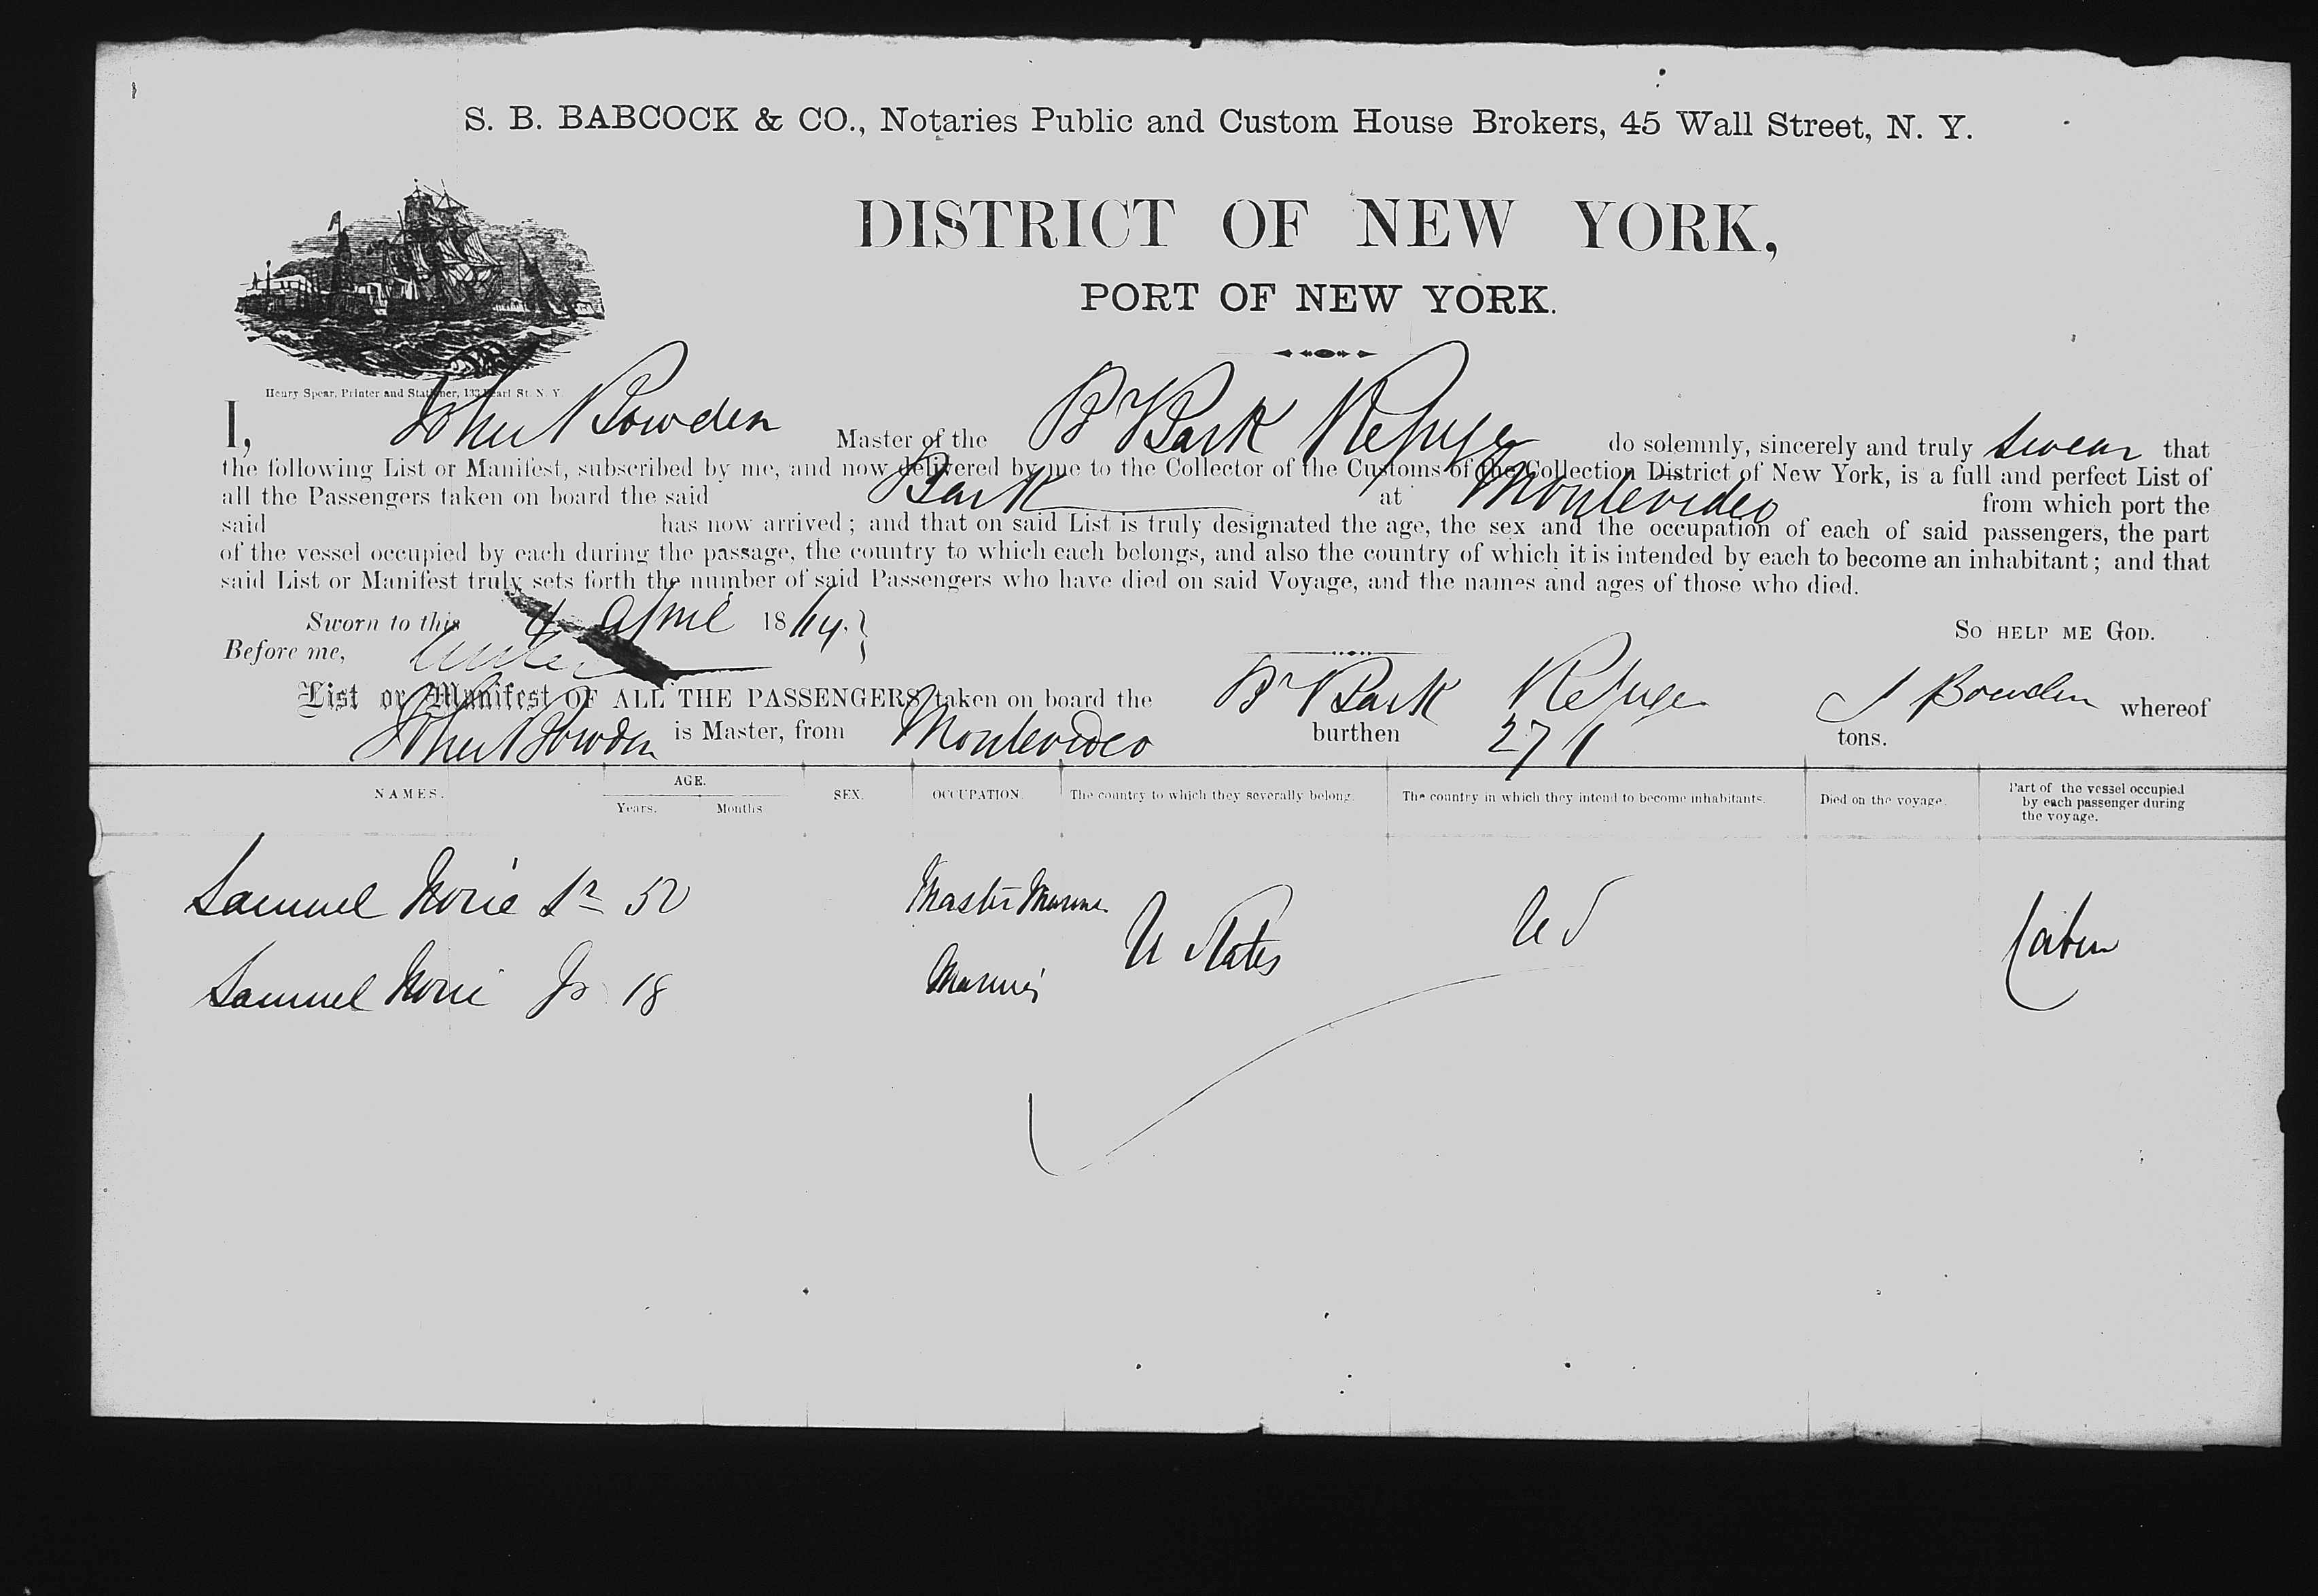 S. B. BABCOCK & CO., Notaries Public and Custom House Brokers, 45 Wall Street, N. Y.
DISTRICT OF NEW YORK,
PORT OF NEW YORK.
Henry Spear, Printer and Stationer, 133 Pearl St. N. Y.
I, John Bowden Master of the Br Bark Refuge do solemnly, sincerely and truly swear that
the following List or Manifest, subscribed by me, and now delivered by me to the Collector of the Customs of the Collection District of New York, is a full and perfect List of
all the Passengers taken on board the said Bark at Montevideo from which port the
said has now arrived; and that on said List is truly designated the age, the sex and the occupation of each of said passengers, the part
of the vessel occupied by each during the passage, the country to which each belongs, and also the country of which it is intended by each to become an inhabitant; and that
said List or Manifest truly sets forth the number of said Passengers who have died on said Voyage, and the names and ages of those who died.
Sworn to this April 1864. So HELP ME GOD.
Before me,
List or Manifest OF ALL THE PASSENGERS taken on board the Br Bark Refuge J Bowden whereof
John Bowden is Master, from Montevideo burthen 271 tons.
NAMES. AGE. SEX. OCCUPATION. The country to which they severally belong. The country in which they intend to become inhabitants. Died on the voyage. Part of the vessel occupied by each passenger during the voyage.
Years. Months
Samuel Sr 50 Master
U States U S Cabin
Samuel Jr 18